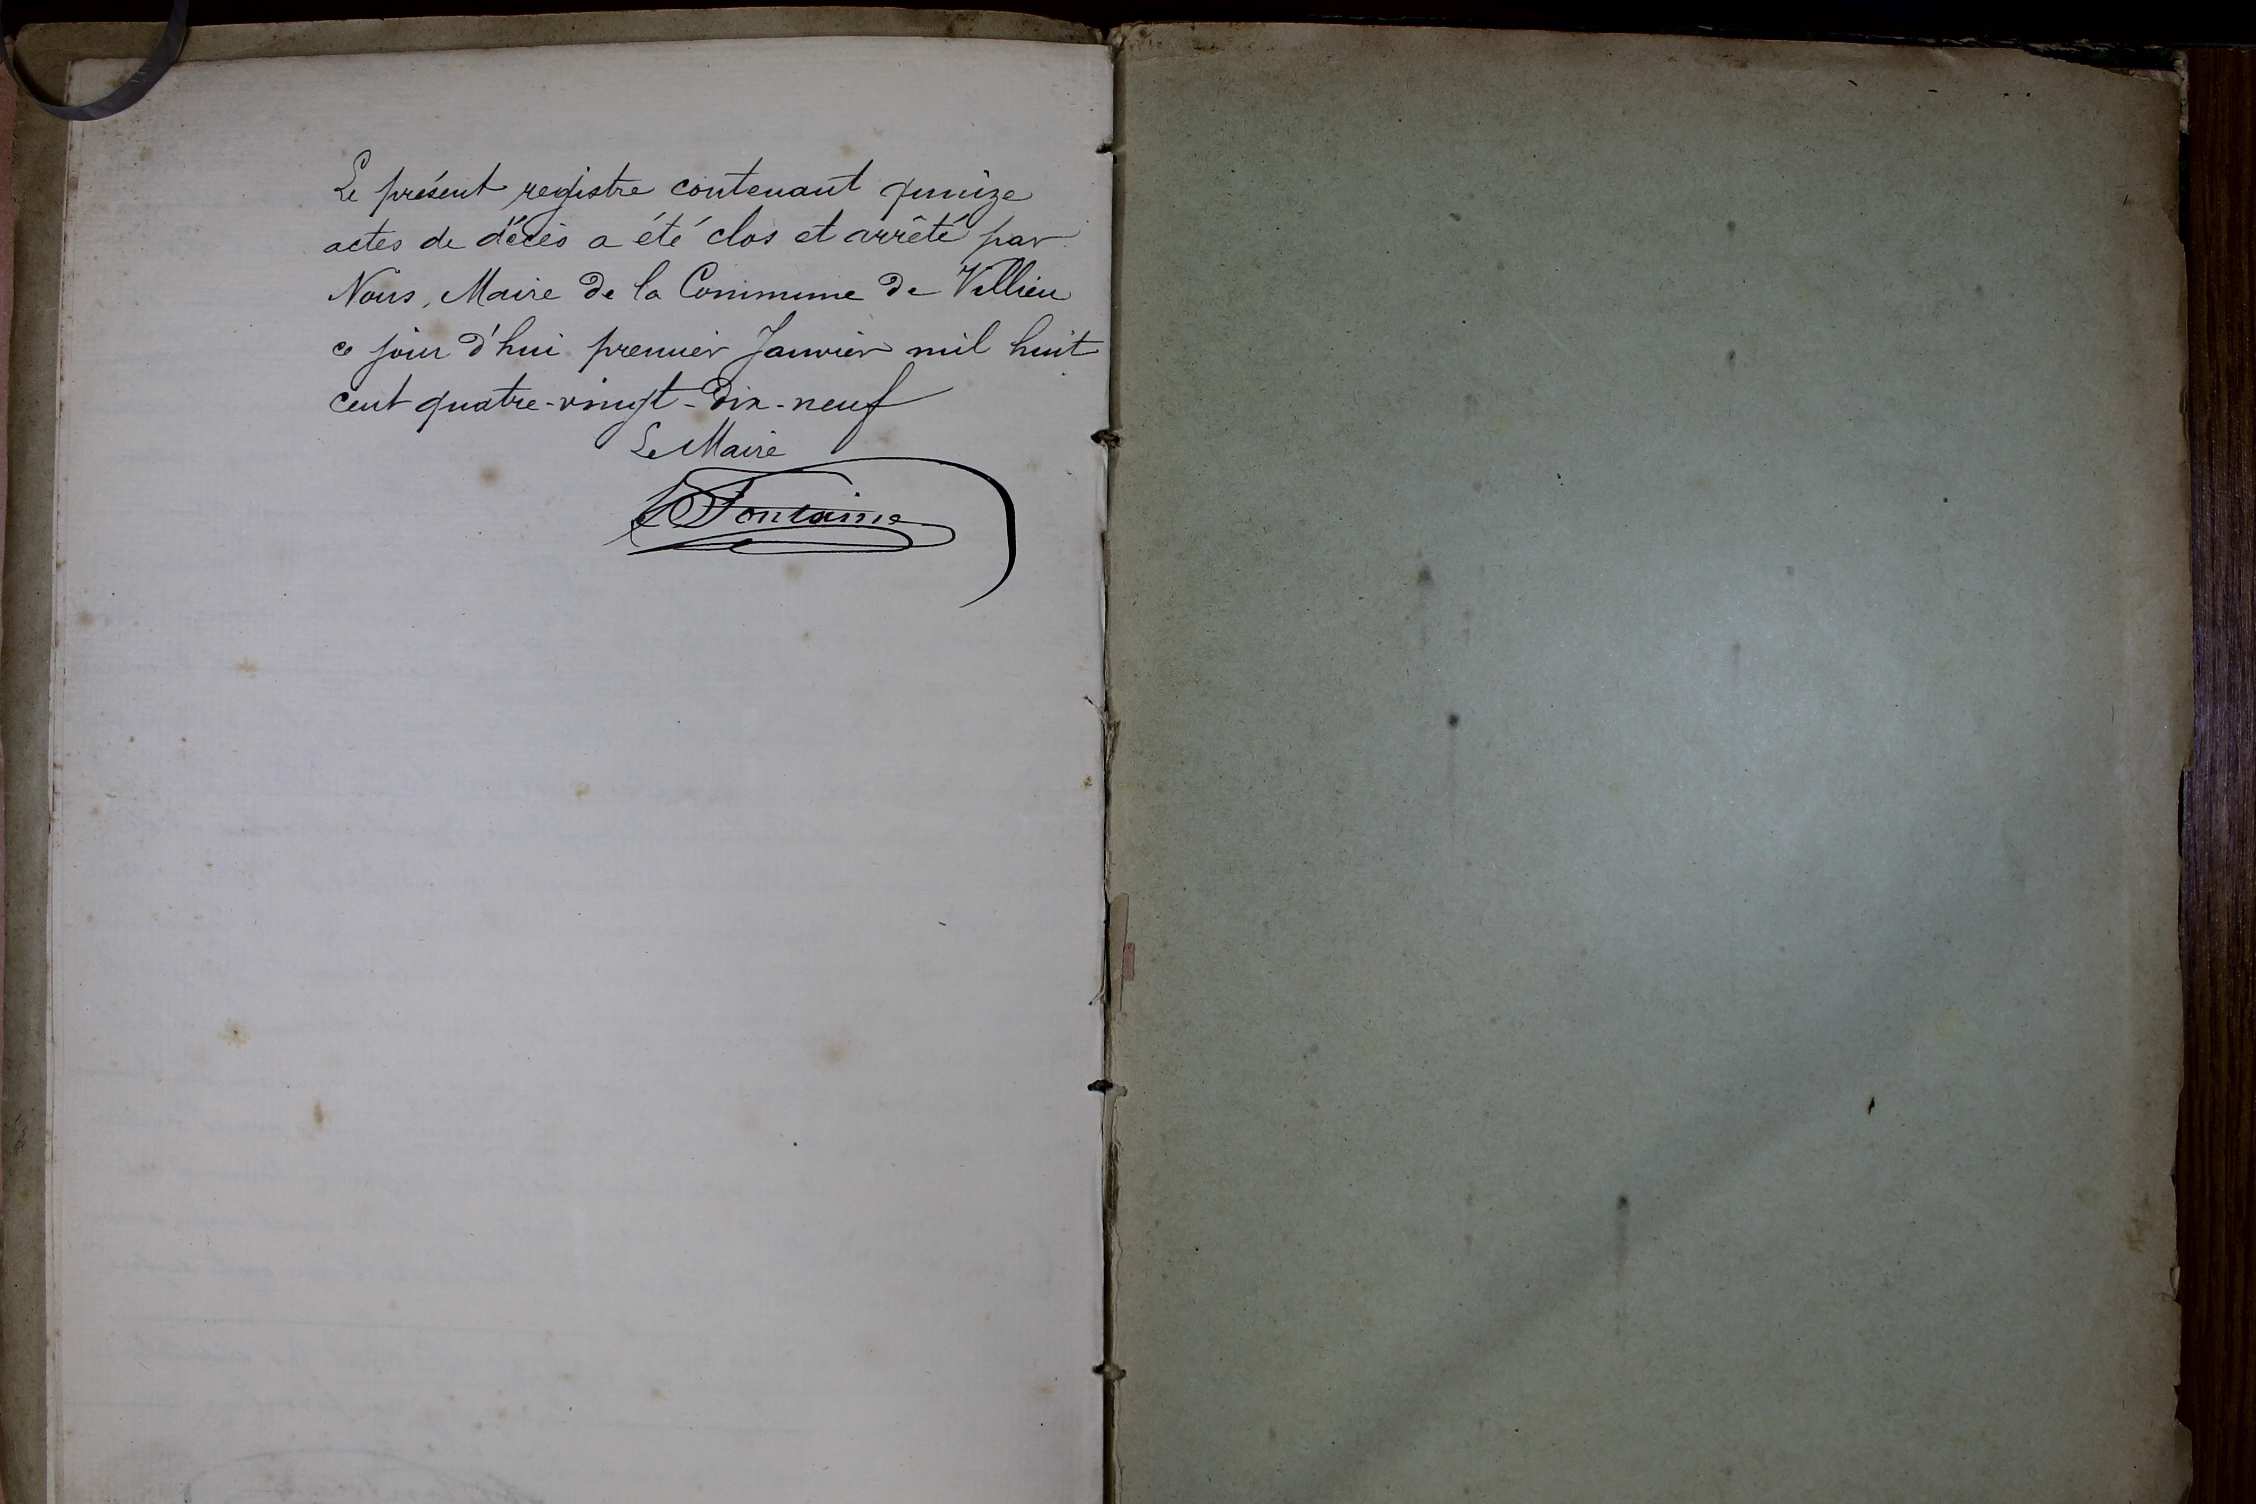 Le présent registre contenant quinze
actes de décès a été clos et arrêté par
Nous, Maire de la Commune de Villieu
ce jour d'hui premier Janvier mil huit
cent quatre-vingt-dix-neuf
Le Maire
Fontaine